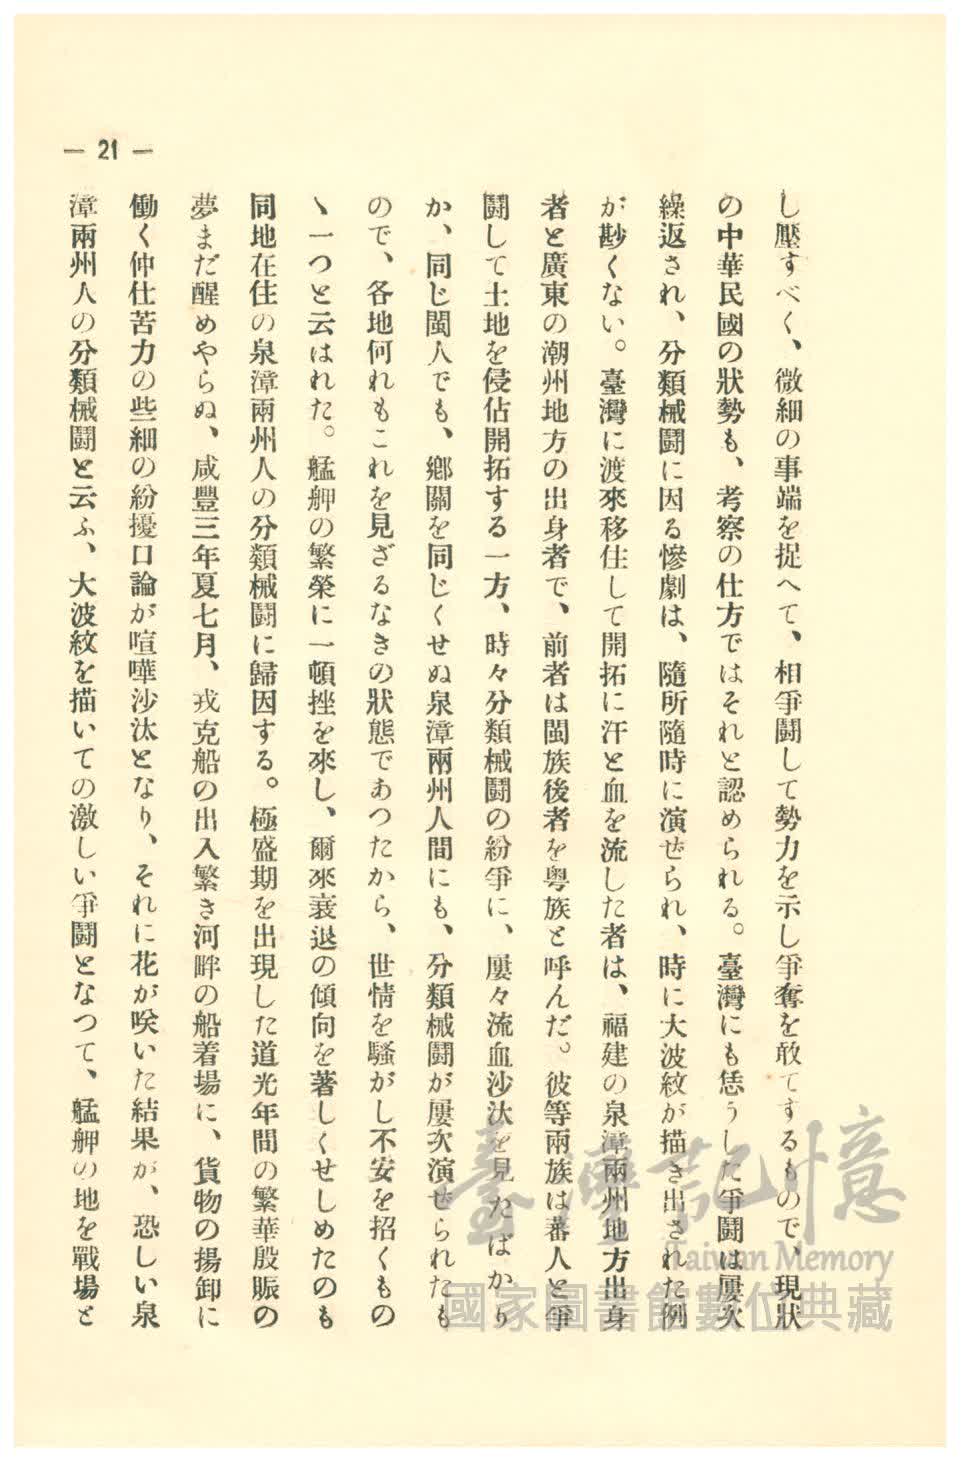 — 21 —
し壓すべく、微細の事端を捉へて、相爭鬪して勢力を示し爭奪を敢てするもので、現狀
の中華民國の狀勢も、考察の仕方ではそれと認められる。臺灣にも恁うした爭鬪は屢次
繰返され、分類械鬪に因る慘劇は、隨所隨時に演せられ、時に大波紋が描き出された例
が尠くない。臺灣に渡來移住して開拓に汗と血を流した者は、福建の泉漳兩州地方出身
者と廣東の潮州地方の出身者で、前者は閩族後者を粤族と呼んだ。彼等兩族は蕃人と爭
鬪して土地を侵佔開拓する一方、時々分類械鬪の紛爭に、屢々流血沙汰を見たばかり
か、同じ閩人でも、鄕關を同じくせぬ泉漳兩州人間にも、分類械鬪が屢次演せられたも
ので、各地何れもこれを見ざるなきの狀態であつたから、世情を騷がし不安を招くもの
ゝ一つと云はれた。艋舺の繁榮に一頓挫を來し、爾來衰退の傾向を著しくせしめたのも
同地在住の泉漳兩州人の分類械鬪に歸因する。極盛期を出現した道光年間の繁華殷賑の
夢まだ醒めやらぬ、咸豐三年夏七月、戎克船の出入繁き河畔の船着場に、貨物の揚卸に
働く仲仕苦力の些細の紛擾口論が喧嘩沙汰となり、それに花が咲いた結果が、恐しい泉
漳兩州人の分類械鬪と云ふ、大波紋を描いての激しい爭鬪となつて、艋舺の地を戰場と
臺灣記憶
Taiwan Memory
國家圖書館數位典藏